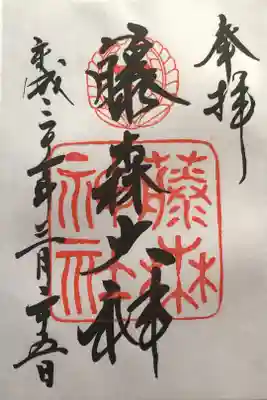 奉拝
藤森大神
藤森神社
平成二十一年三月二十五日